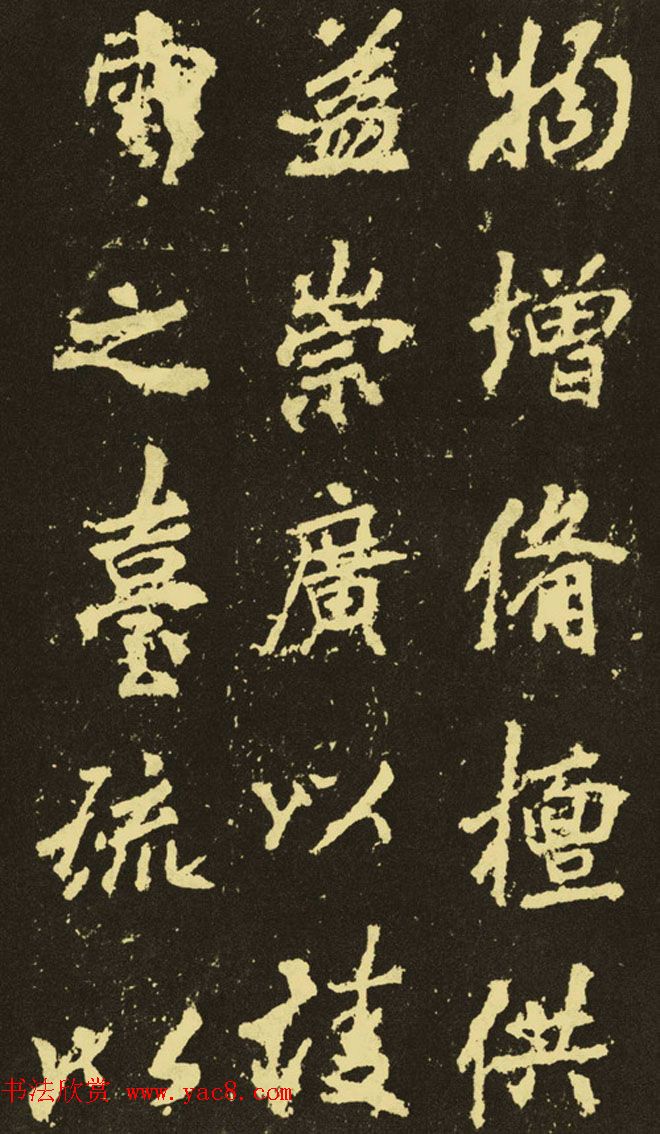 物增備檀供
益崇廣以
雲之臺疏以
书法欣赏 www.yac8.com